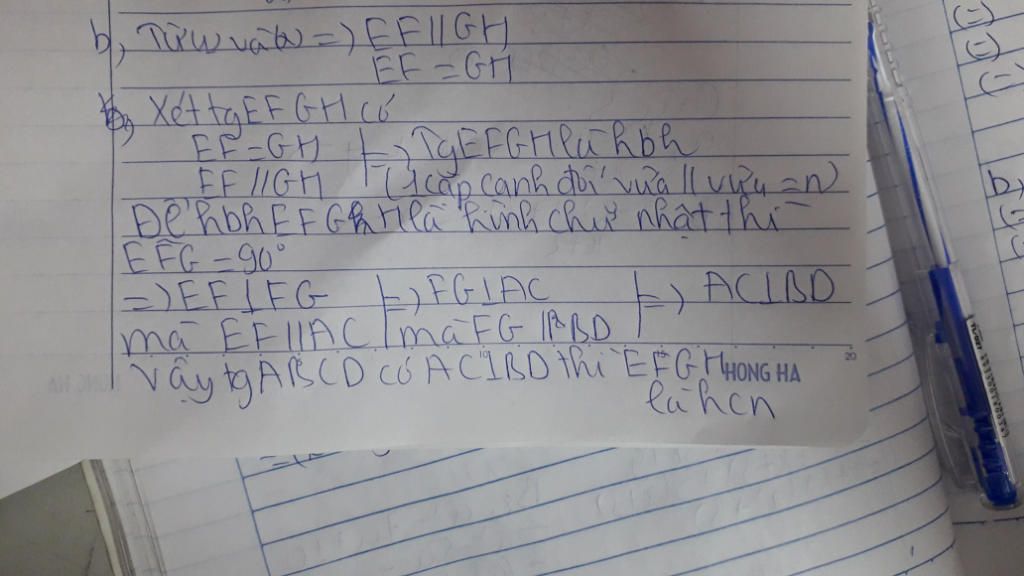 b, Từ (1) và (2) =) EF//GH
EF = GH
b, Xét tg EFGH có
EF = GH
=) Tg EFGH là hbh
EF // GH
(1 cặp cạnh đối vừa // vừa = n)
Để hbh EFGH là hình chữ nhật thì
EFG = 90°
=) EF⊥FG
=) FG⊥AC
=) AC⊥BD
mà EF//AC
mà FG//BD
Vậy tg ABCD có AC⊥BD thì EFGH
là hcn
HONG HA
20
(=)
(=)
(=)
b,